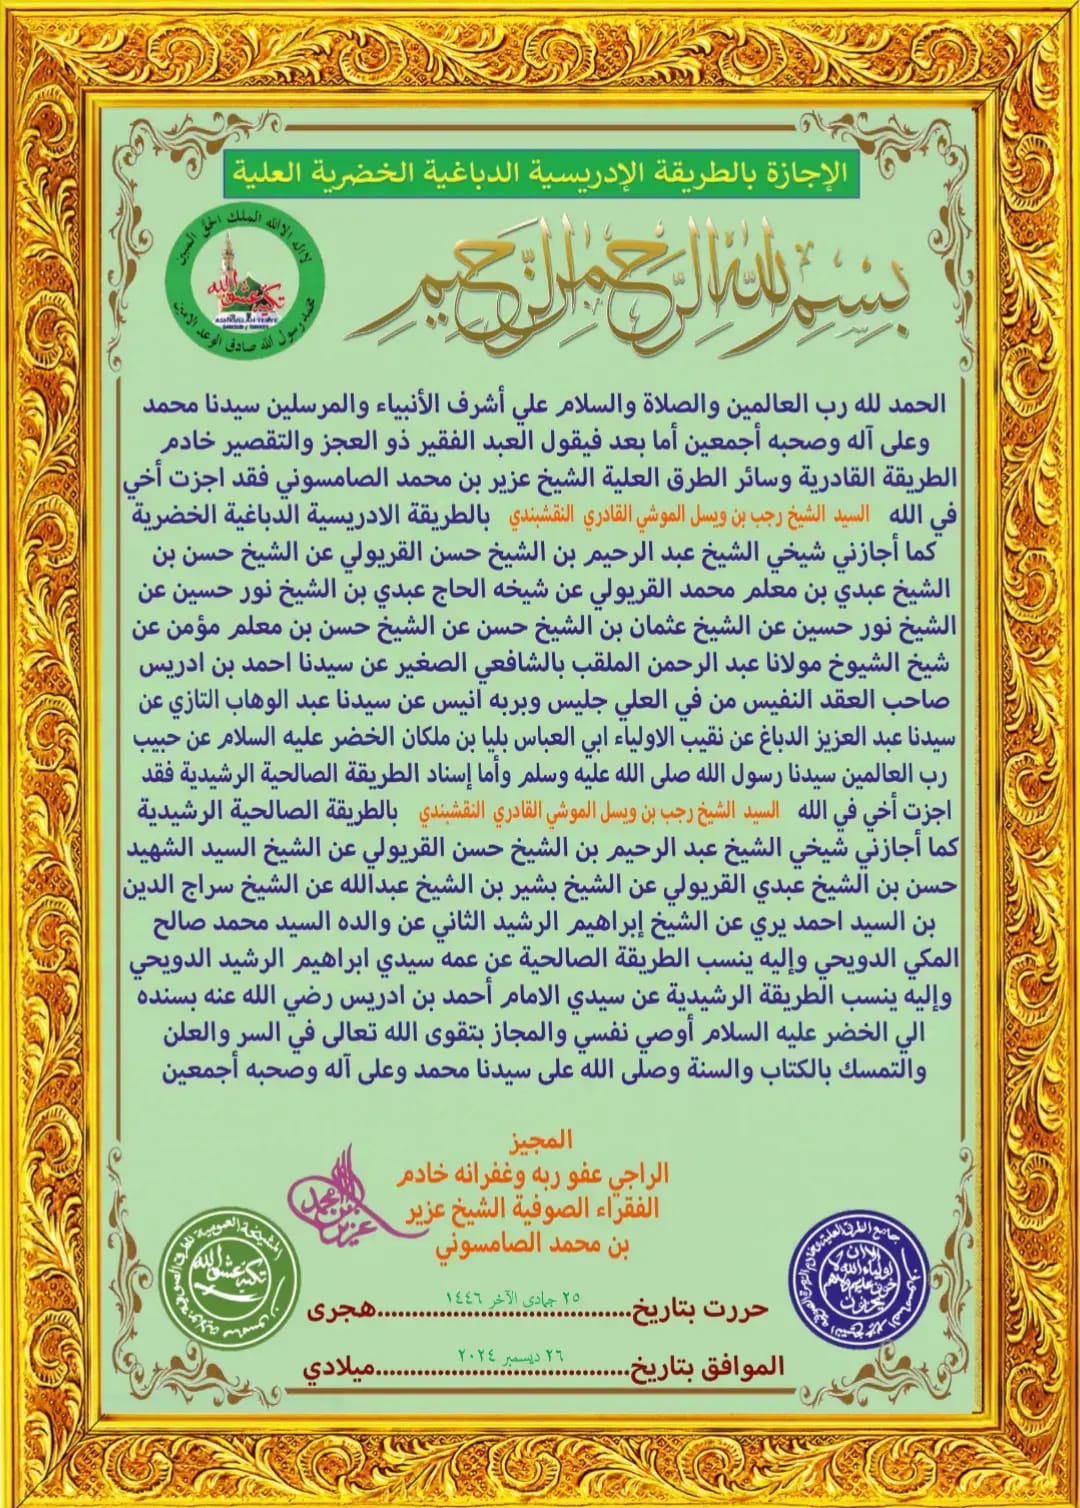 الإجازة بالطريقة الإدريسية الدباغية الخضرية العلية
لا اله الا الله الملك الحق المبين
محمد رسول الله صادق الوعد الامين
تكية عشق الله
بسم الله الرحمن الرحيم
الحمد لله رب العالمين والصلاة والسلام علي أشرف الأنبياء والمرسلين سيدنا محمد
وعلى آله وصحبه أجمعين أما بعد فيقول العبد الفقير ذو العجز والتقصير خادم
الطريقة القادرية وسائر الطرق العلية الشيخ عزير بن محمد الصامسوني فقد اجزت أخي
في الله السيد الشيخ رجب بن ويسل الموشي القادري النقشبندي بالطريقة الادريسية الدباغية الخضرية
كما أجازني شيخي الشيخ عبد الرحيم بن الشيخ حسن القريولي عن الشيخ حسن بن
الشيخ عبدي بن معلم محمد القريولي عن شيخه الحاج عبدي بن الشيخ نور حسين عن
الشيخ نور حسين عن الشيخ عثمان بن الشيخ حسن عن الشيخ حسن بن معلم مؤمن عن
شيخ الشيوخ مولانا عبد الرحمن الملقب بالشافعي الصغير عن سيدنا احمد بن ادريس
صاحب العقد النفيس من في العلي جليس وبربه انيس عن سيدنا عبد الوهاب التازي عن
سيدنا عبد العزيز الدباغ عن نقيب الاولياء ابي العباس بليا بن ملكان الخضر عليه السلام عن حبيب
رب العالمين سيدنا رسول الله صلى الله عليه وسلم وأما إسناد الطريقة الصالحية الرشيدية فقد
اجزت أخي في الله السيد الشيخ رجب بن ويسل الموشي القادري النقشبندي بالطريقة الصالحية الرشيدية
كما أجازني شيخي الشيخ عبد الرحيم بن الشيخ حسن القريولي عن الشيخ السيد الشهيد
حسن بن الشيخ عبدي القريولي عن الشيخ بشير بن الشيخ عبدالله عن الشيخ سراج الدين
بن السيد احمد يري عن الشيخ إبراهيم الرشيد الثاني عن والده السيد محمد صالح
المكي الدويحي وإليه ينسب الطريقة الصالحية عن عمه سيدي ابراهيم الرشيد الدويحي
وإليه ينسب الطريقة الرشيدية عن سيدي الامام أحمد بن ادريس رضي الله عنه بسنده
الي الخضر عليه السلام أوصي نفسي والمجاز بتقوى الله تعالى في السر والعلن
والتمسك بالكتاب والسنة وصلى الله على سيدنا محمد وعلى آله وصحبه أجمعين
المجيز
الراجي عفو ربه وغفرانه خادم
الفقراء الصوفية الشيخ عزير
بن محمد الصامسوني
عزير بن محمد
تكية عشق الله
الا ان
اولياء الله لا
خوف عليهم ولا هم
يحزنون
حررت بتاريخ..........٢٥ جمادى الآخر ١٤٤٦..........هجرى
الموافق بتاريخ..........٢٦ ديسمبر ٢٠٢٤..........ميلادي